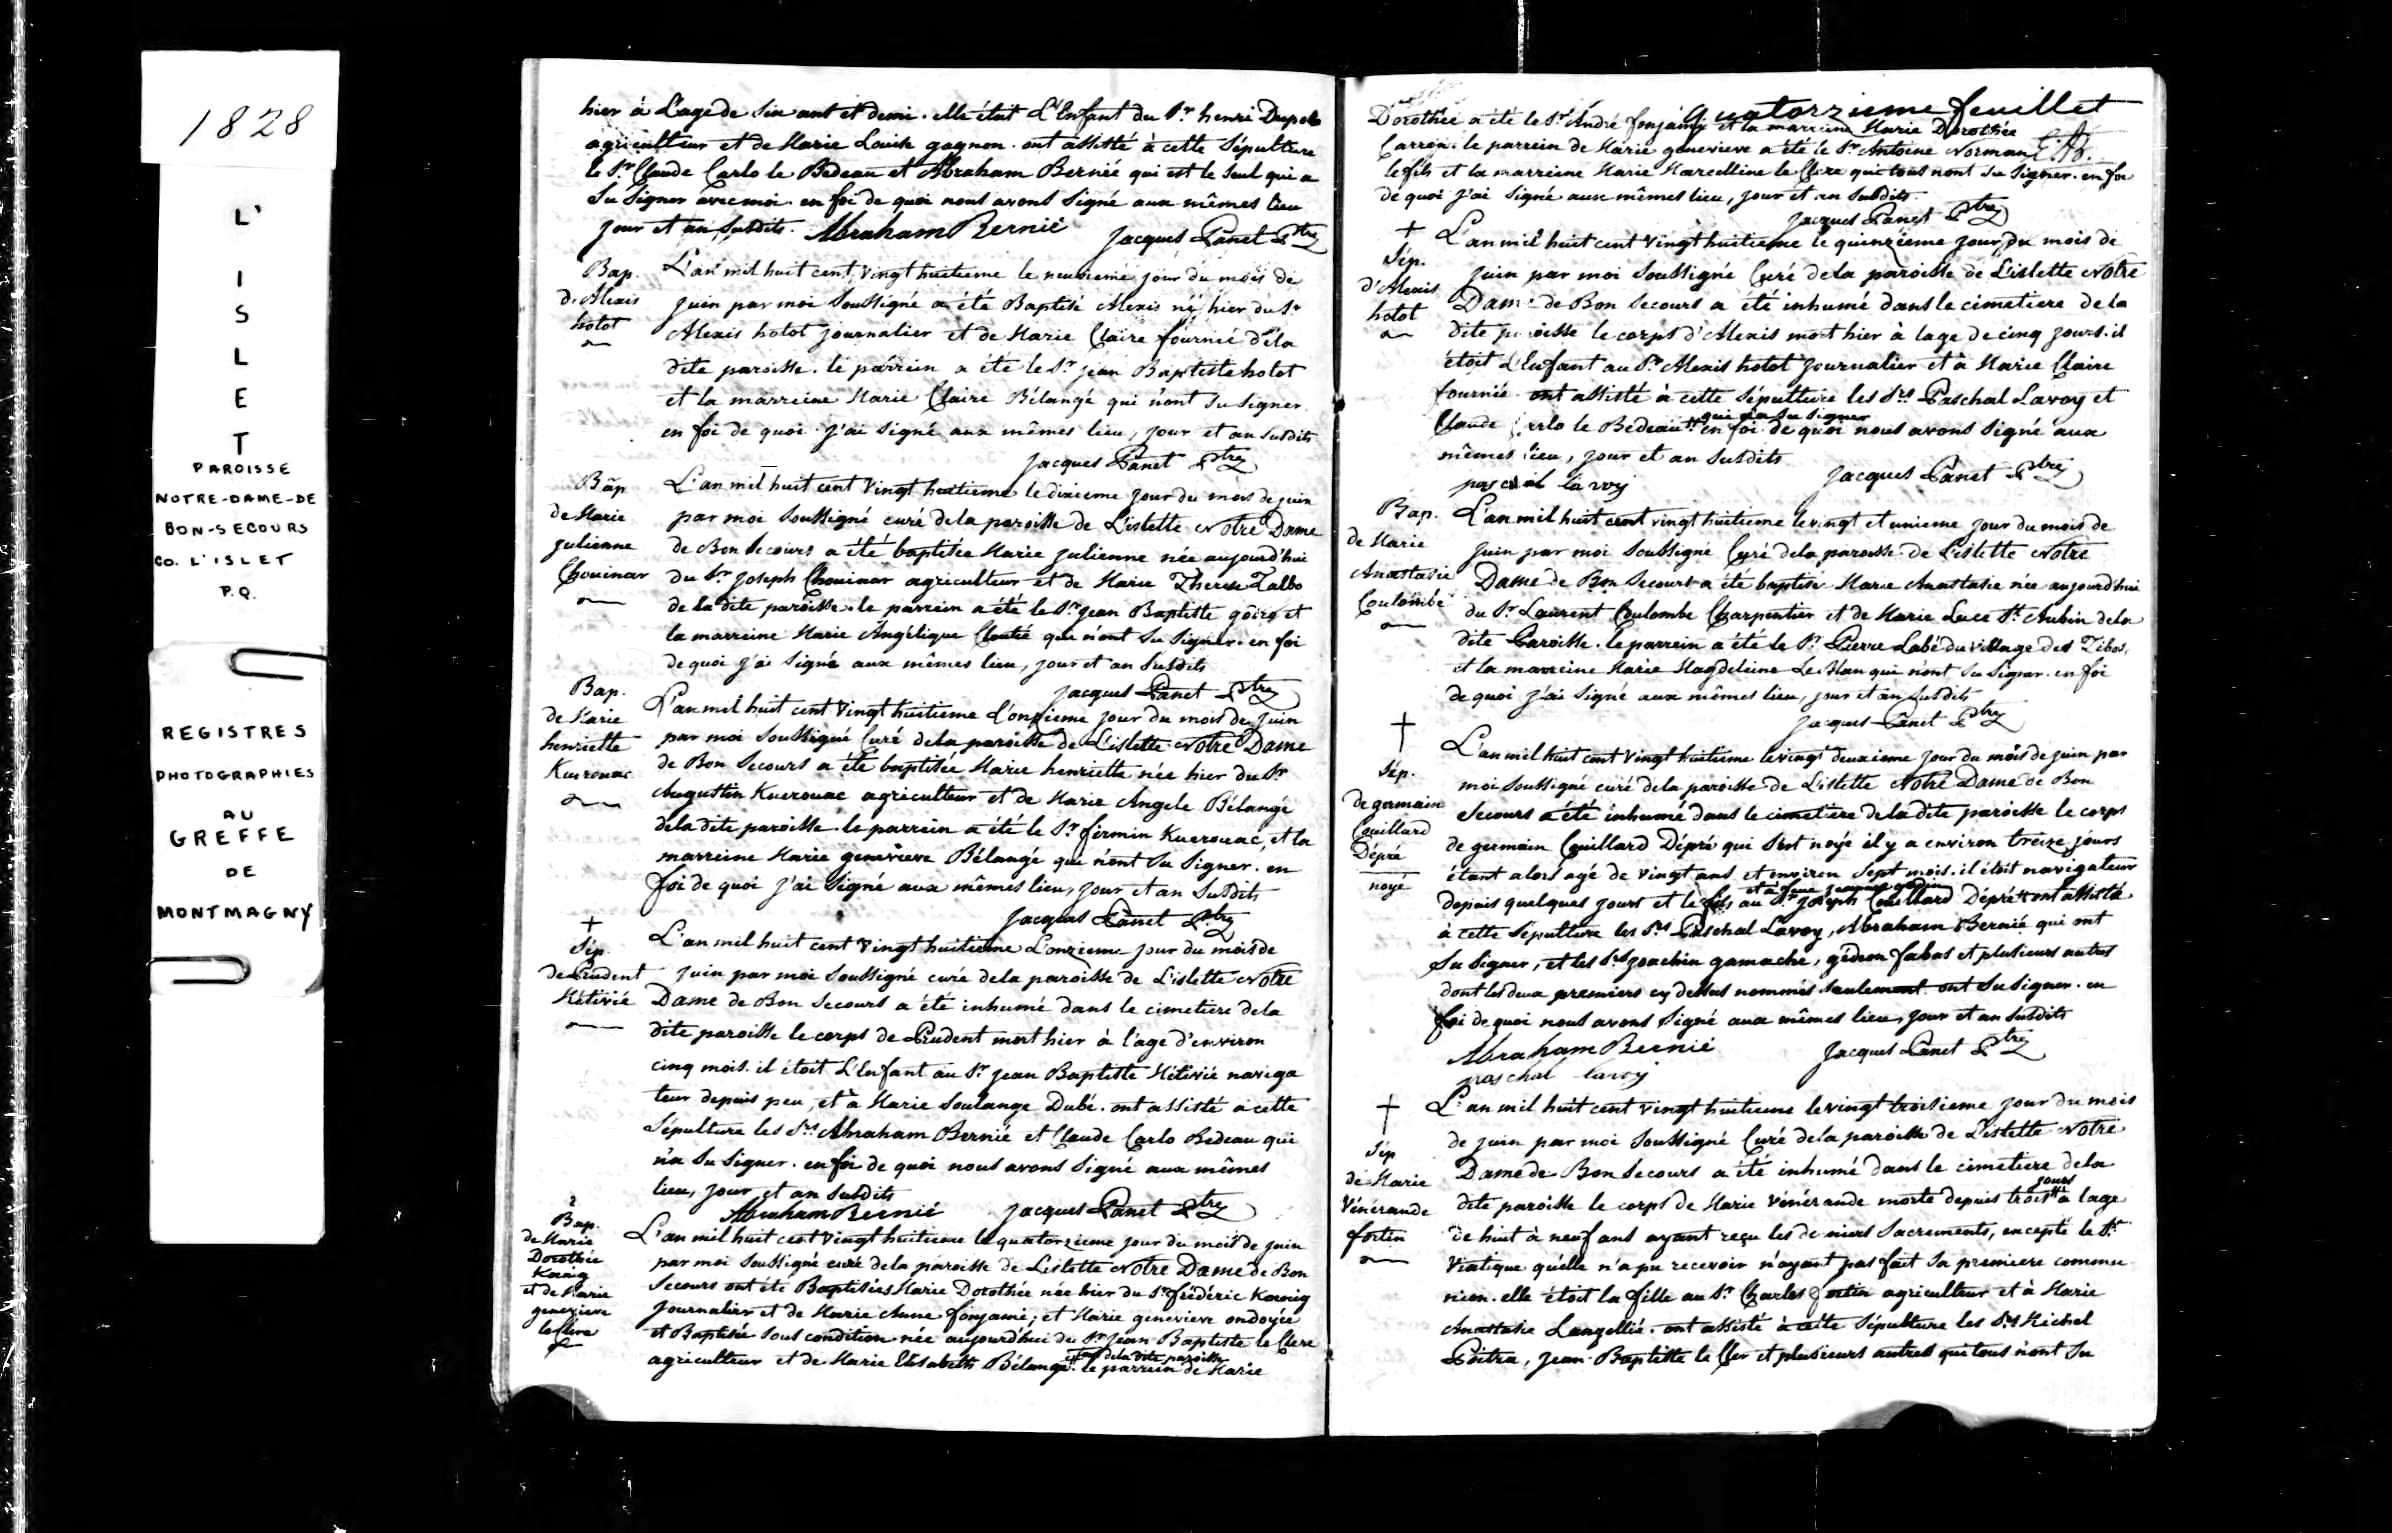 1828
L'
I
S
L
E
T
PAROISSE
NOTRE-DAME-DE
BON-SECOURS
CO. L'ISLET
P.Q.
REGISTRES
PHOTOGRAPHIES
AU
GREFFE
DE
MONTMAGNY
hier à L'age de six ans et demi. elle étoit L'Enfant du Sr henri
agriculteur et de Marie Louise gagnon. ont assisté à cette Sépulture
le Sr Claude Carlo le Bedeau et Abraham Bernié qui est le seul qui a
su signer avec moi. en foi de quoi nous avons signé aux mêmes lieu
jour et an susdits. Abraham Bernié Jacques Panet Ptre
Bap.
d'Alexis
hotot
L'an mil huit cent vingt huitieme le neuvieme jour du mois de
juin par moi soussigné a été Baptisé Alexis né hier du Sr
Alexis hotot journalier et de Marie Claire fournié dela
dite paroisse. le parrein a été le Sr jean Baptiste hotot
et la marreine Marie Claire Bélangé qui n'ont su signer
en foi de quoi j'ai signé aux mêmes lieu, jour et an susdits
Jacques Panet Ptre
Bap
de Marie
julienne
Chouinar
L'an mil huit cent vingt huitieme le dixieme jour du mois de juin
par moi soussigné curé dela paroisse de L'islette Notre Dame
de Bon Secours a été baptisée Marie julienne née aujourd'hui
du Sr joseph Chouinar agriculteur et de Marie Therese Talbo
de la dite paroisse. le parrein a été le Sr jean Baptiste et
la marreine Marie Angélique Cloutié qui n'ont su signer. en foi
de quoi j'ai signé aux mêmes lieu, jour et an susdits
Jacques Panet Ptre
Bap.
de Marie
henriette
Kuerouac
L'an mil huit cent vingt huitieme l'onzieme jour du mois de juin
par moi soussigné Curé dela paroisse de L'islette Notre Dame
de Bon Secours a été baptisée Marie henriette née hier du Sr
Augustin Kuerouac agriculteur et de Marie Angele Bélangé
dela dite paroisse. le parrein a été le Sr firmin Kuerouac, et la
marreine Marie genevieve Bélangé qui n'ont su signer. en
foi de quoi j'ai signé aux mêmes lieu, jour et an susdits
Jacques Panet Ptre
Sép
de Prudent
Métivié
L'an mil huit cent vingt huitieme L'onzieme jour du mois de
juin par moi soussigné curé dela paroisse de L'islette Notre
Dame de Bon Secours a été inhumé dans le cimetiere dela
dite paroisse le corps de Prudent mort hier à l'age d'environ
cinq mois. il étoit L'Enfant au Sr jean Baptiste Métivié naviga
teur depuis peu, et à Marie Soulange Dubé. ont assisté à cette
Sépulture les Srs Abraham Bernié et Claude Carlo Bedeau qui
n'a su signer. en foi de quoi nous avons signé aux mêmes
lieu, jour et an susdits
Abraham Bernié Jacques Panet Ptre
2
Bap.
de Marie
Dorothée
Kœnig
et de Marie
genevieve
le Clere
L'an mil huit cent vingt huitieme le quatorzieme jour du mois de juin
par moi soussigné curé dela paroisse de L'islette Notre Dame de Bon
Secours ont été Baptisées Marie Dorothée née hier du Sr frédéric Kœnig
journalier et de Marie Anne fonjami; et Marie genevieve ondoyée
et Baptisée sous condition née aujourd'hui du Sr jean Baptiste le Clere
agriculteur et de Marie Elisabeth Bélangé. tous dela dite paroisse le parrein de Marie
Quatorzieme feuillet
Dorothée a été le Sr André fonjami et la marreine Marie Dorothée
Carron. le parrein de Marie genevieve a été le Sr Antoine Norman
le fils et la marreine Marie Marcelline le Clere qui tous n'ont su signer. en foi
de quoi j'ai signé aux mêmes lieu, jour et an susdits.
Jacques Panet Ptre
Sép.
d'Alexis
hotot
L'an mil huit cent vingt huitieme le quinzieme jour du mois de
juin par moi soussigné Curé dela paroisse de L'islette Notre
Dame de Bon Secours a été inhumé dans le cimetiere de la
dite paroisse le corps d'Alexis mort hier à lage de cinq jours. il
étoit L'Enfant au Sr Alexis hotot journalier et à Marie Claire
fournié. ont assisté à cette Sépulture les Srs Paschal Lavoy et
Claude Carlo le Bedeau qui n'a su signer en foi de quoi nous avons signé aux
mêmes lieu, jour et an susdits
paschal lavoy Jacques Panet Ptre
Bap.
de Marie
Anastasie
Coulombe
L'an mil huit cent vingt huitieme le vingt et unieme jour du mois de
juin par moi soussigné Curé dela paroisse de L'islette Notre
Dame de Bon Secours a été baptisé Marie Anastasie née aujourd'hui
du Sr Laurent Coulombe Charpentier et de Marie Luce St Aubin dela
dite Paroisse. le parrein a été le Sr Pierre Labé du village des
et la marreine Marie Magdeleine qui n'ont su signer. en foi
de quoi j'ai signé aux mêmes lieu, jour et an susdits
Jacques Panet Ptre
Sép.
de germain
Couillard
Dépré
noyé
L'an mil huit cent vingt huitieme le vingt deuxieme jour du mois de juin par
moi soussigné curé dela paroisse de L'islette Notre Dame de Bon
Secours a été inhumé dans le cimetiere dela dite paroisse le corps
de germain Couillard Dépré qui s'est noyé il y a environ treize jours
étant alors agé de vingt ans et environ sept mois. il étoit navigateur
depuis quelques jours et le fils au Sr joseph Couillard Dépré et à feue ont assisté
à cette Sépulture les Srs Paschal Lavoy, Abraham Bernié qui ont
su signer, et les Srs joachim gamache, gédeon fabas et plusieurs autres
dont les deux premiers cy dessus nommés seulement ont su signer. en
foi de quoi nous avons signé aux mêmes lieu, jour et an susdits
Abraham Bernié Jacques Panet Ptre
paschal lavoy
Sép
de Marie
Vénérande
fortin
L'an mil huit cent vingt huitieme le vingt troisieme jour du mois
de juin par moi soussigné Curé dela paroisse de L'islette Notre
Dame de Bon Secours a été inhumé dans le cimetiere dela
dite paroisse le corps de Marie Vénérande morte depuis trois jours à lage
de huit à neuf ans ayant reçu les derniers Sacrements, excepté le St
Viatique qu'elle n'a pu recevoir n'ayant pas fait sa premiere commu
nion. elle étoit la fille au Sr Charles fortin agriculteur et à Marie
Anastasie Langellié. ont assisté à cette Sépulture les Srs Michel
Poitra, jean Baptiste le Cler et plusieurs autres qui tous n'ont su